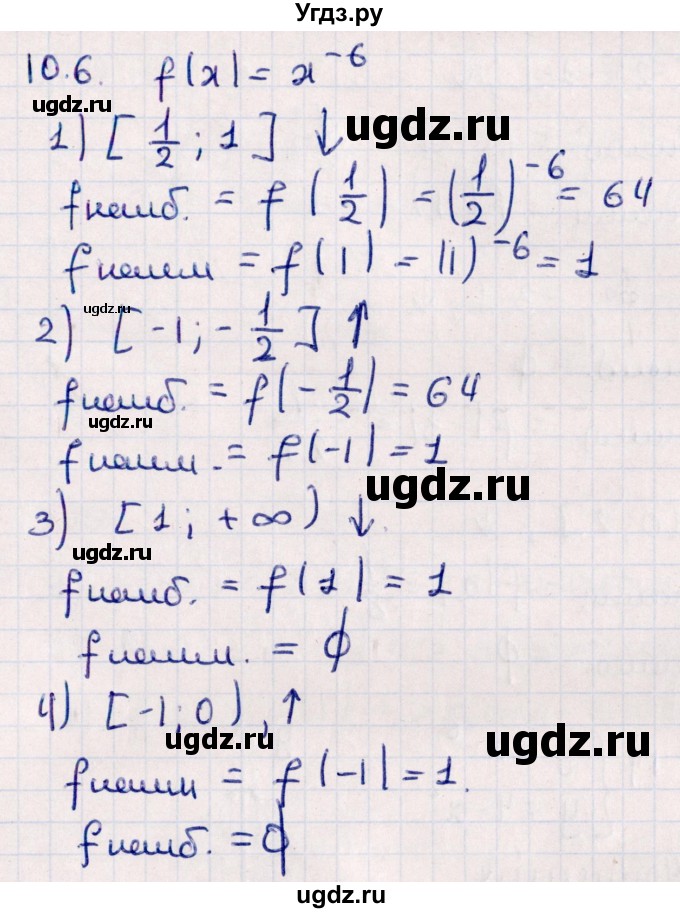 Угдз.ру
10.6. f(x) = x^{-6}
ugdz.ru
1) [1/2; 1] ↓
ugdz.ru
fнаиб. = f(1/2) = (1/2)^{-6} = 64
fнаим = f(1) = (1)^{-6} = 1
ugdz.ru
2) [-1; -1/2] ↑
fнаиб. = f(-1/2) = 64
ugdz.ru
fнаим. = f(-1) = 1
ugdz.ru
3) [1; +∞) ↓
ugdz.ru
fнаиб. = f(1) = 1
ugdz.ru
fнаим. = ∅
4) [-1; 0), ↑
ugdz.ru
ugdz.ru
fнаим = f(-1) = 1.
fнаиб. = ∅
ugdz.ru